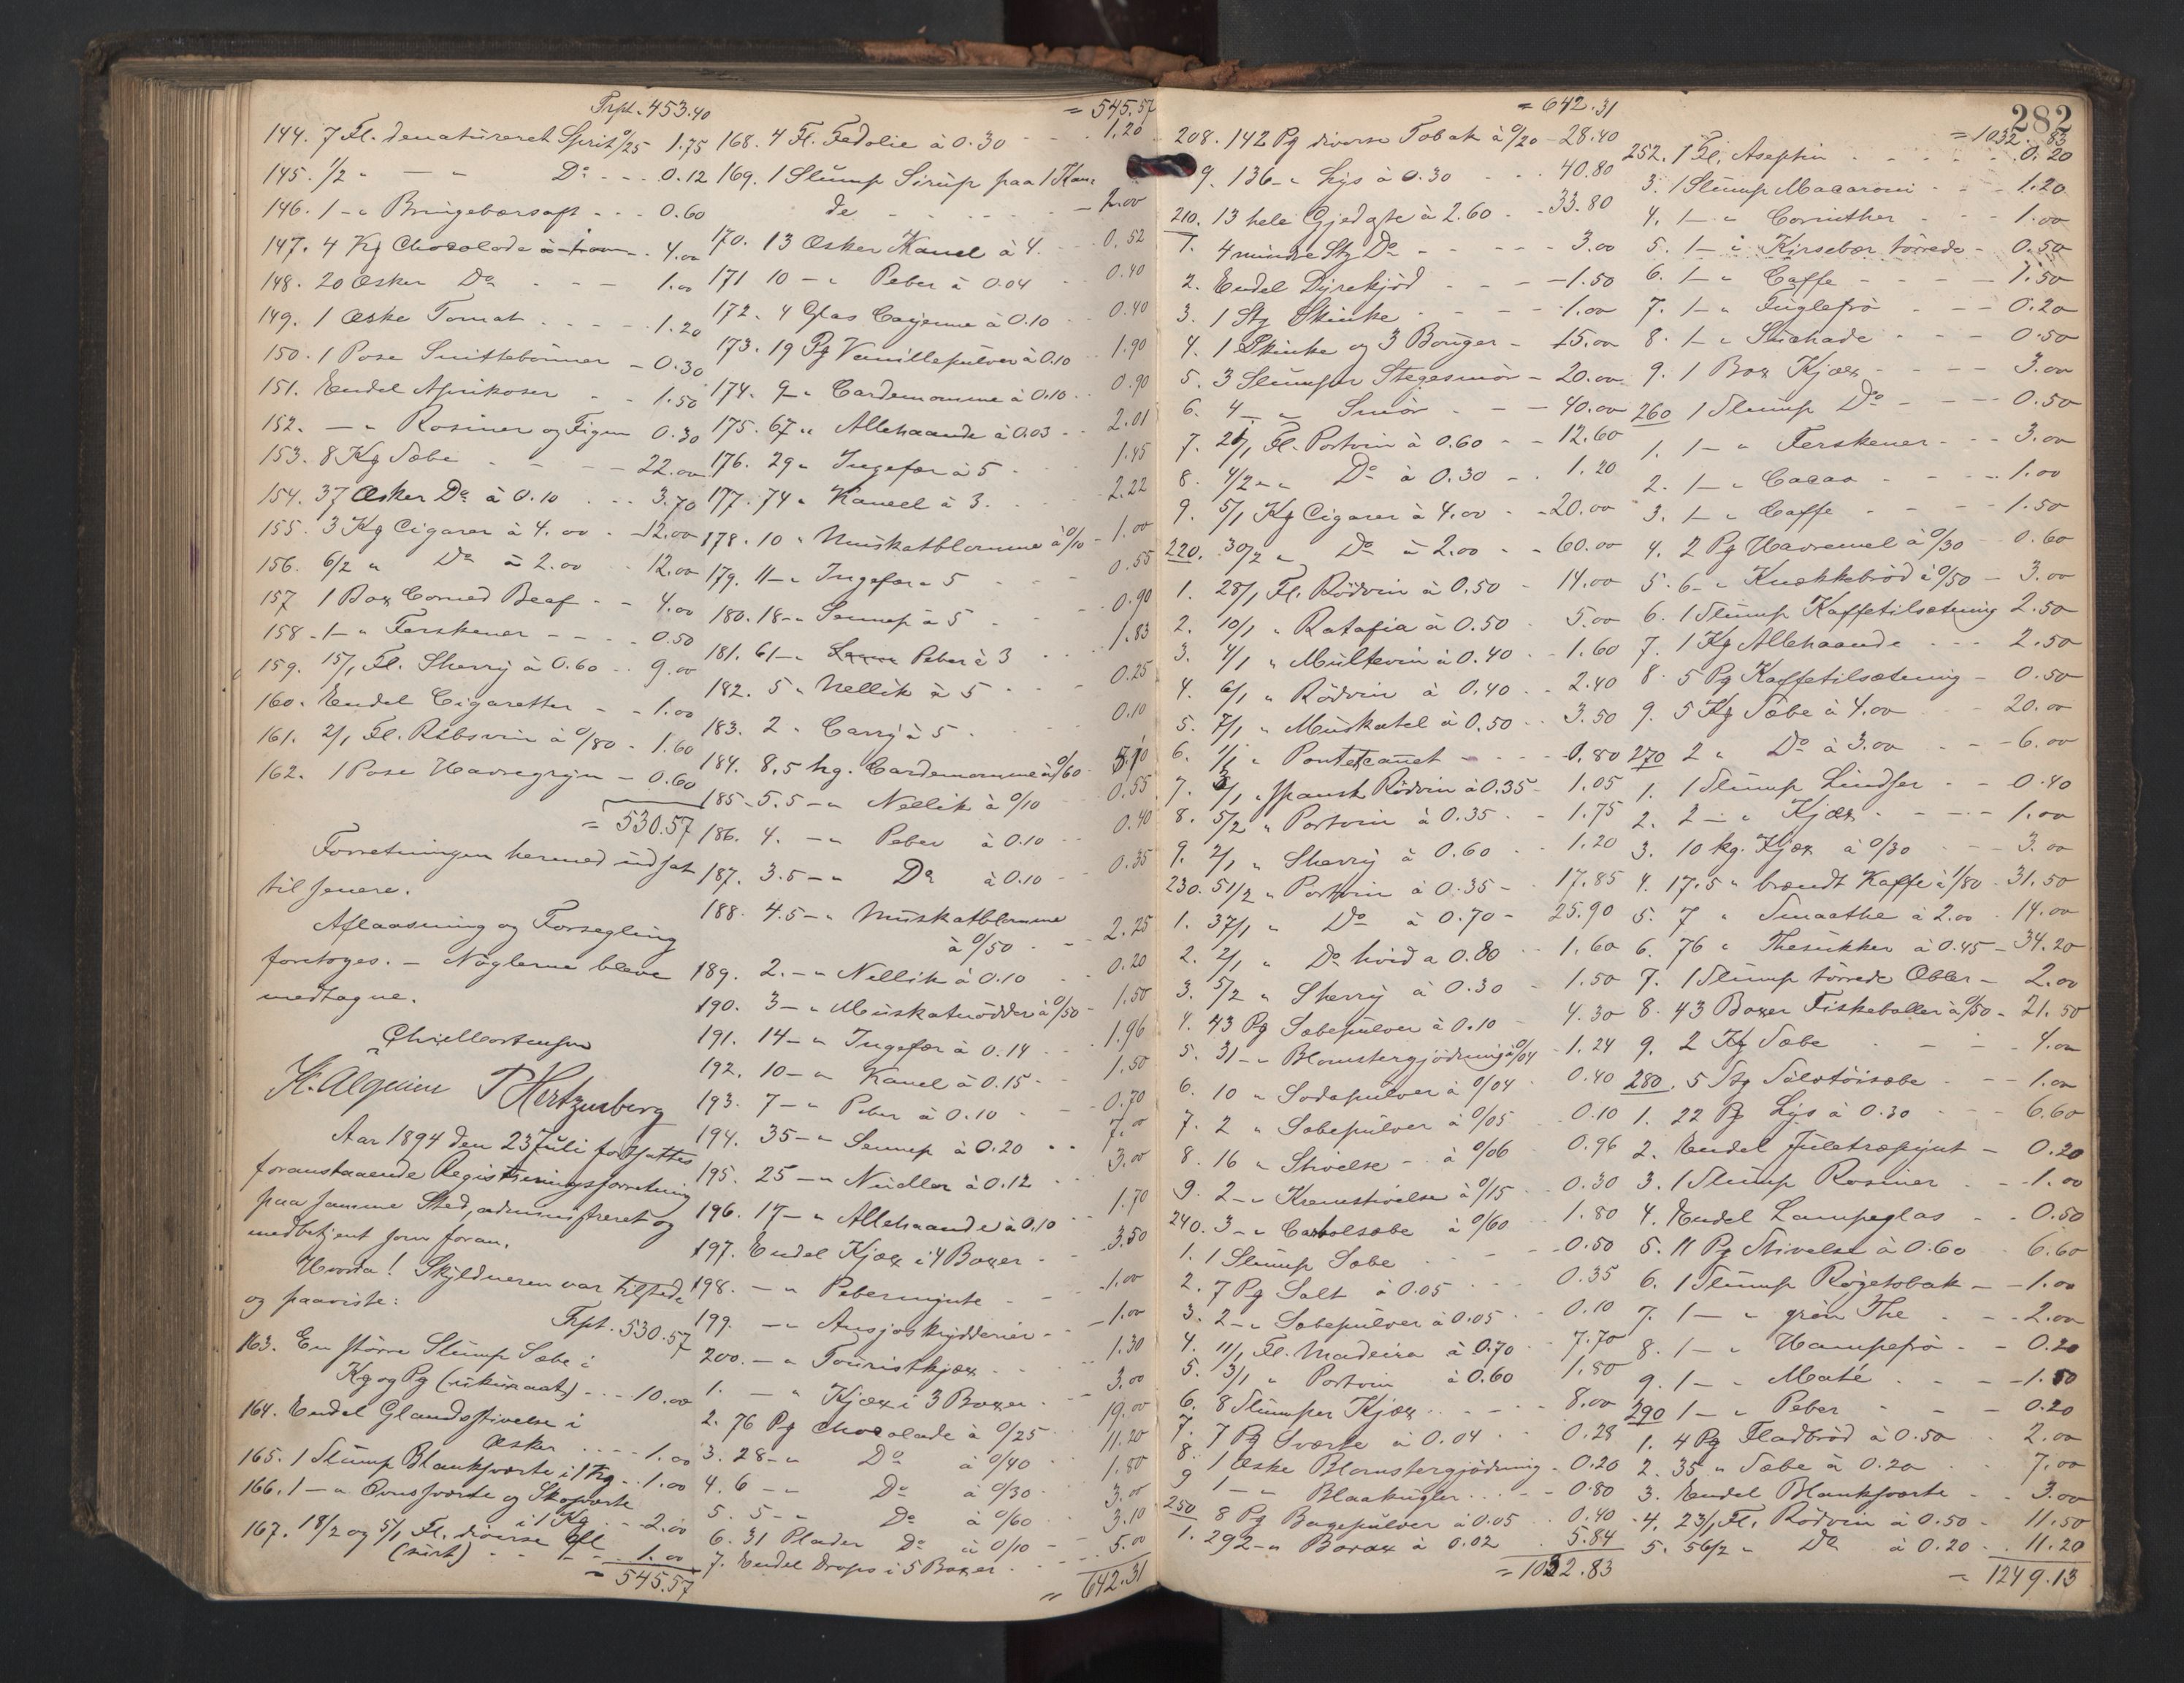 Trpt. 453.40
144. 7 Fl. denatureret Sprit 0/25 1.75
145. 1/2 " — " Do - - - 0.12
146. 1 - " Bringebærsaft - - - 0.60
147. 4 Kg Chocolade - - 4.00
148. 20 Æsker Do - - - 1.00
149. 1 Æske Tomat - - - - 1.20
150. 1 Pose Snittebønner - 0.30
151. Endel Aprikoser - - 1.50
152. — " Rosiner og Figen 0.30
153. 8 Kg Sæbe - - - - 22.00
154. 37 Æsker Do à 0.10 - - - 3.70
155. 3 Kg Cigarer à 4.00 - 12.00
156. 6/2 " Do à 2.00 - 12.00
157 1 Box Corned Beaf - - 4.00
158 - 1 - " Ferskener - - - - 0.50
159. 15/1 Fl. Sherry à 0.60 - - 9.00
160. Endel Cigaretter - - 1.00
161. 2/1 Fl. Ribsvin à 0/80 - 1.60
162. 1 Pose Havregryn - 0.60
= 530.57
Forretningen hermed udsat
til senere.
Aflaasning og Forsegling
foretoges. - Nøglerne bleve
medtagne.
Chr. Mortensen
K. Alquien P Hertzenberg
Aar 1894 den 23 Juli fortsattes
foranstaaende Registreringsforretning
paa samme Sted, administreret og
medbetjent som foran.
Hvorda! Skyldneren var tilstede
og paaviste:
Trpt. 530.57
163. En større Slump Sæbe i
Kg og Pg (ukurant) - - - 10.00
164. Endel Glandsstivelse i
Æsker - - - - 1.00
165. 1 Slump Blanksværte i 1 Kg - - 1.00
166. 1 - " Ovnsværte og Skosværte
i 1 Kg - - 2.00
167. 18/2 og 5/1 Fl. diverse Øl
(surt) - - - - 1.00
= 545.57
= 545.57
168. 4 Fl. Fedolie à 0.30 - - - 1.20
169. 1 Slump Sirup paa 1 Kan-
de - - - - - - 2.00
170. 13 Æsker Kanel à 4. - - - 0.52
171 10 - " Peber à 0.04 - - 0.40
172. 4 Glas Cayenne à 0.10 - - 0.40
173. 19 Pg Vanillepulver à 0.10 - - 1.90
174. 9 - " Cardemomme à 0.10 - - 0.90
175. 67 " Allehaande à 0.03 - - 2.01
176. 29 " Ingefær à 5 - - 1.45
177. 74 " Kaneel à 3. - - - 2.22
178. 10 " Muskatblomme à 0/10 - 1.00
179. 11 - " Ingefær " 5 - - - 0.55
180. 18 - " Sennep à 5 - - - 0.90
181. 61 - " Peber à 3 - - - 1.83
182. 5 " Nellik à 5 - - - 0.25
183. 2 " Carry à 5 - - - 0.10
184. 8,5 hg. Cardemomme à 0/60 - 5.10
185 - 5.5 - " Nellik à 0/10 - - 0.55
186. 4. - " Peber à 0.10 - - 0.40
187. 3.5 - " Do à 0.10 - - 0.35
188. 4.5 - " Muskatblomme
à 0/50 - - - 2.25
189. 2. - " Nellik à 0.10 - - 0.20
190. 3 - " Muskatnødder à 0/50 - 1.50
191. 14 - " Ingefær à 0.14 - - - 1.96
192. 10 - " Kanel à 0.15 - - 1.50
193. 7 - " Peber à 0.10 - - - 0.70
194. 35 - " Sennep à 0.20 - - 7.00
195. 25 - " Nudler à 0.12 - - - 3.00
196. 17 - " Allehaande à 0.10 - - 1.70
197. Endel Kjæx i 4 Boxer - - 3.50
198. - " Pebermynte - - - 1.00
199. - " Ansjoskrydderier - - 1.00
200. - " Touristkjæx - - - 1.30
1. - " Kjæx i 3 Boxer - - 3.00
2. 76 Pg Chocolade à 0/25 - 19.00
3. 28 - " Do à 0/40 - 11.20
4. 6 - " Do à 0/30 - 1.80
5. 5 - " Do à 0/60 - 3.00
6. 31 Plader Do à 0/10 - - 3.10
7. Endel Drops i 5 Boxer - - - 5.00
= 642.31
282
= 642.31
208. 142 Pg diverse Tobak à 0/20 - 28.40
9. 136 - " Lys à 0.30 - - - 40.80
210. 13 hele Gjedoste à 2.60 - - 33.80
1. 4 mindre Stg Do - - - - - 3.00
2. Endel Dyrekjød - - - - 1.50
3. 1 Stg Skinke - - - - 1.00
4. 1 Skinke og 3 Bouger - 15.00
5. 3 Slumper Stegesmør - 20.00
6. 4 - " Smør - - - 40.00
7. 21/1 Fl. Portvin à 0.60 - - 12.60
8. 4/2 - " Do à 0.30 - - 1.20
9. 5/1 Kg Cigarer à 4.00 - - 20.00
220. 30/2 " Do à 2.00 - - 60.00
1. 28/1 Fl. Rødvin à 0.50 - 14.00
2. 10/1 " Ratafia à 0.50 - 5.00
3. 4/1 " Multevin à 0.40 - - 1.60
4. 6/1 " Rødvin à 0.40 - - 2.40
5. 7/1 " Muskatel à 0.50 - - 3.50
6. 1/1 " Pontetcanet - - - 0.80
7. 3/1 " spansk Rødvin à 0.35 - 1.05
8. 5/2 " Portvin à 0.35 - - 1.75
9. 2/1 " Sherry à 0.60 - - 1.20
230. 51/2 " Portvin à 0.35 - - 17.85
1. 37/1 " Do à 0.70 - 25.90
2. 2/1 " Do hvid a 0.80 - - 1.60
3. 5/2 " Sherry à 0.30 - 1.50
4. 43 Pg Sæbepulver à 0.10 - 4.30
5. 31 - " Blomstergjødning à 0/04 - 1.24
6. 10 " Sodapulver à 0/04 - 0.40
7. 2 " Sæbepulver à 0/05 0.10
8. 16 " Stivelse - à 0/06 - 0.96
9. 2 - " Kremstivelse à 0/15 - - 0.30
240. 3 - " Carbolsæbe à 0/60 - - 1.80
1. 1 Slump Sæbe - - - - 0.50
2. 7 Pg Salt à 0.05 - - - 0.35
3. 2 - " Sæbepulver à 0.05 - - 0.10
4. 11/1 Fl. Madeira à 0.70 - - 7.70
5. 3/1 " Portvin à 0.60 1.80
6. 8 Slumper Kjæx - - - - 8.00
7. 7 Pg Sværte à 0.04 - - 0.28
8. 1 Æske Blomstergjødning - 0.20
9 1 - " Blaakugler - - - - 0.80
250 8 Pg Bagepulver à 0.05 - - 0.40
1. 292 - " Borax à 0.02 - 5.84
= 1032.83
= 1032.83
252. 1 Fl. Aseptin - - - - - - 0.20
3. 1 Slump Macaroni - - - 1.20
4. 1 - " Corinther - - - 1.00
5. 1 - " Kirsebær tørrede - 0.50
6. 1 - " Caffe - - - - 1.50
7. 1 - " Fuglefrø - - - 0.20
8. 1 - " - - - 0.50
9. 1 Box Kjæx - - - - 3.00
260 1 Slump Do - - - - 0.50
1. 1 - " Ferskener - - - 3.00
2. 1 - " Cacao - - - - 1.00
3. 1 - " Caffe - - - - 1.50
4. 2 Pg Havremel à 0/30 - 0.60
5. 6 - " Knækkebrød à 0/50 - 3.00
6. 1 Slump Kaffetilsætning 2.50
7. 1 Kg Allehaande - - - 2.50
8. 5 Pg Kaffetilsætning - 0.50
9. 5 Kg Sæbe à 4.00 20.00
270 2 " Do à 3.00 - - - 6.00
1. 1 Slump Lindser - - 0.40
2. 2 - " Kjæx - - - - 1.00
3. 10 kg. Kjæx à 0/30 - - - 3.00
4. 17.5 " brændt Kaffe à 1/80 - 31.50
5. 7 " Smaathe à 2.00 - 14.00
6. 76 " Thesukker à 0.45 - 34.20
7. 1 Slump tørrede Æbler - 2.00
8. 43 Boxer Fiskeboller à 0/50 - 21.50
9. 2 Kg Sæbe - - - - 4.00
280. 5 Stg Sølvtøisæbe - - - 1.00
1. 22 Pg Lys à 0.30 - - - 6.60
2. Endel Juletræpynt - 0.20
3. 1 Slump Rosiner - - - 1.00
4. Endel Lampeglas - - 0.50
5. 11 Pg Stivelse à 0.60 - 6.60
6. 1 Slump Røgetobak - - 1.00
7. 1 - " grøn The - - - 2.00
8. 1 - " Hampefrø - - 0.20
9. 1 - " Maté - - - - 1.50
290 1 - " Peber - - - 0.20
1. 4 Pg Fladbrød à 0.50 - - 2.00
2. 35 " Sæbe à 0.20 - - 7.00
3. Endel Blanksværte - - 3.00
4. 23/1 Fl. Rødvin à 0.50 - 11.50
5. 56/2 " Do à 0.20 - - 11.20
= 1249.13